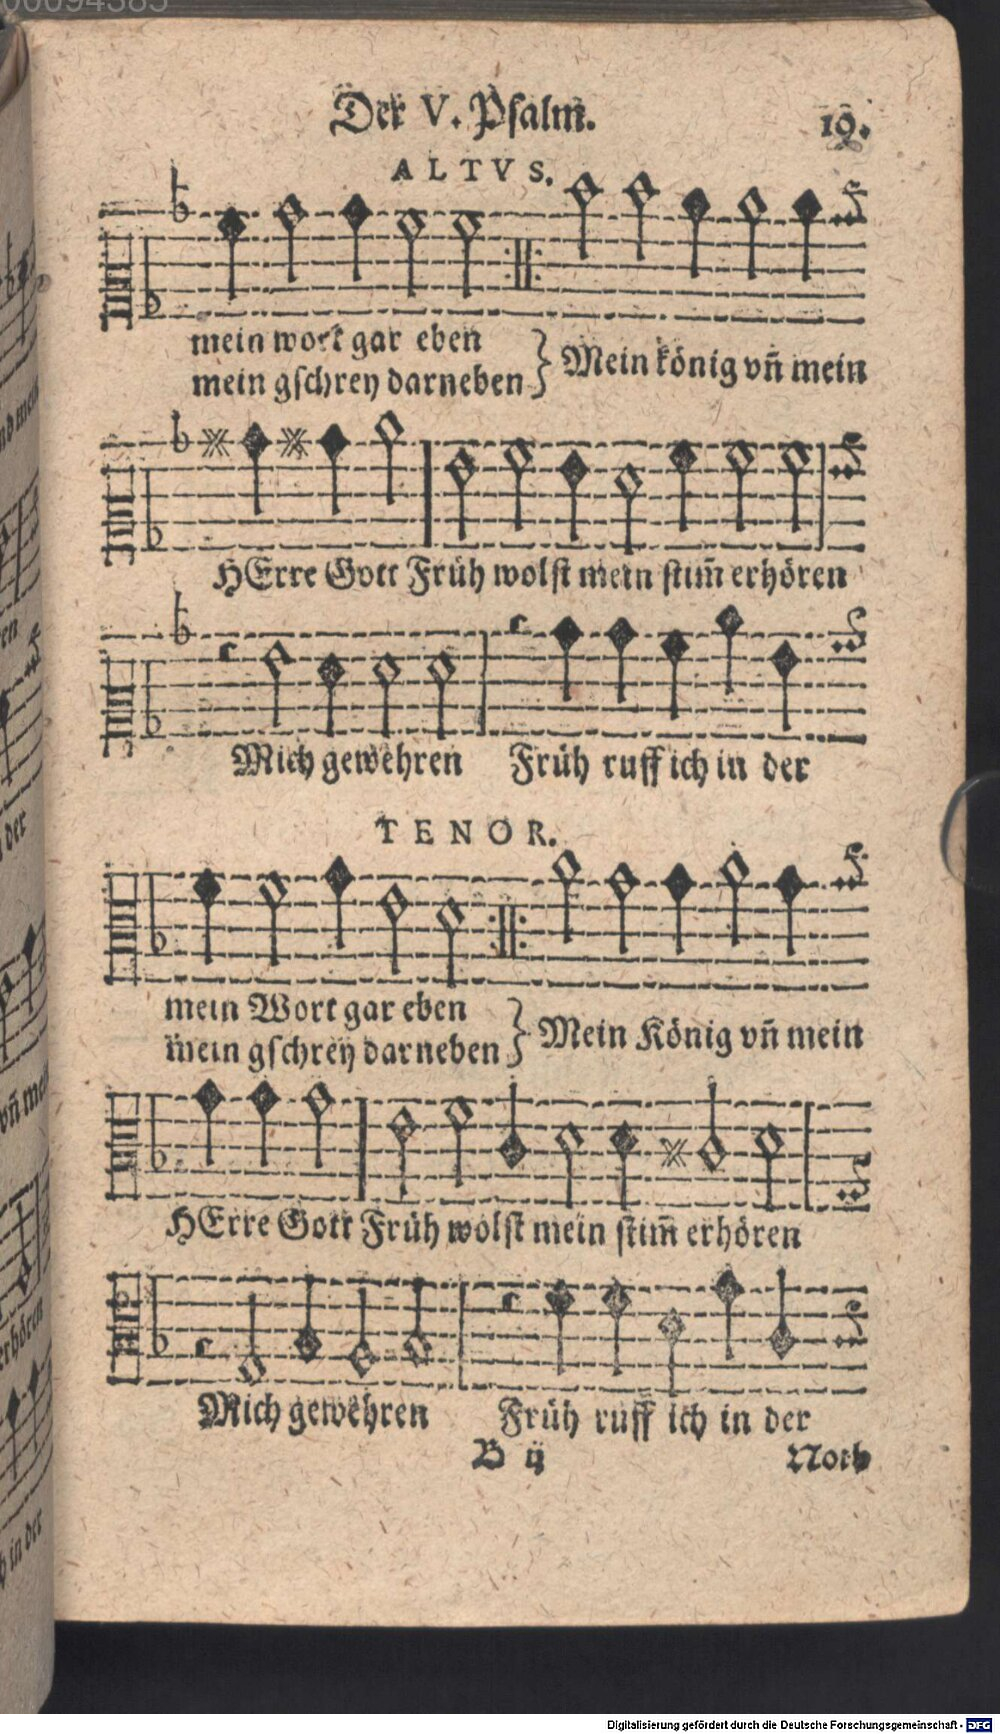 00094385
Der V. Psalm. 19.
ALTVS.
mein wort gar eben
mein gschrey darneben } Mein könig vn̄ mein
HErre Gott Früh wolst mein stim̄ erhören
Mich gewehren Früh ruff ich in der
TENOR.
mein Wort gar eben
mein gschrey darneben } Mein König vn̄ mein
HErre Gott Früh wolst mein stim̄ erhören
Mich gewehren Früh ruff ich in der
B ij Noth
Digitalisierung gefördert durch die Deutsche Forschungsgemeinschaft - DFG